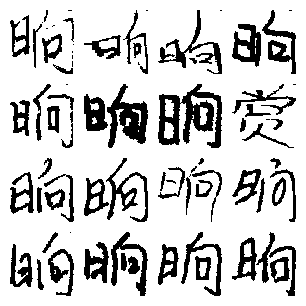 晌晌晌晌
晌晌晌赏
晌晌晌晌
晌晌晌晌